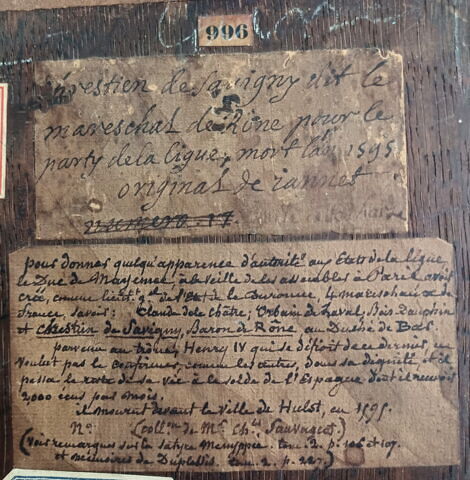 996
chrestien de Savigny dit le
mareschal de Rône pour le
party de la ligue, mort l'an 1595.
original de iannet
numero. 17.
pour donner quelqu'apparence d'autorité aux Etats de la ligue,
le Duc de Mayenne, à la veille de les assembler à Paris avoit
créé, comme lieut. gal de l'Etat de la Couronne, 4 maréchaux de
France, savoir: Claude de la Châtre; Urbain de Laval, Bois-Dauphin
et Chrestien de Savigny, Baron de Rône au Duché de Bar.
parvenu au trône, Henry IV qui se défioit de ce dernier, ne
voulut pas le confirmer, comme les autres, dans sa dignité et il
passa le reste de sa vie à la solde de l'Espagne dont il recevoit
2,000 écus par mois.
il mourut devant la ville de Hulst, en 1595.
N° (collon de Mr Chles Sauvageot.)
(Voir remarques sur la satyre Menyppée. tom. 2. p. 106 et 107.
et mémoires de Duplessis. tom. 2. p. 227.)